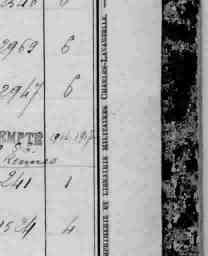 2969 6
2947 6
EMPTR
Rennes
241 1
1524 4
IMPRIMERIE ET LIBRAIRIE MILITAIRES CHARLES-LAVAUZELLE.